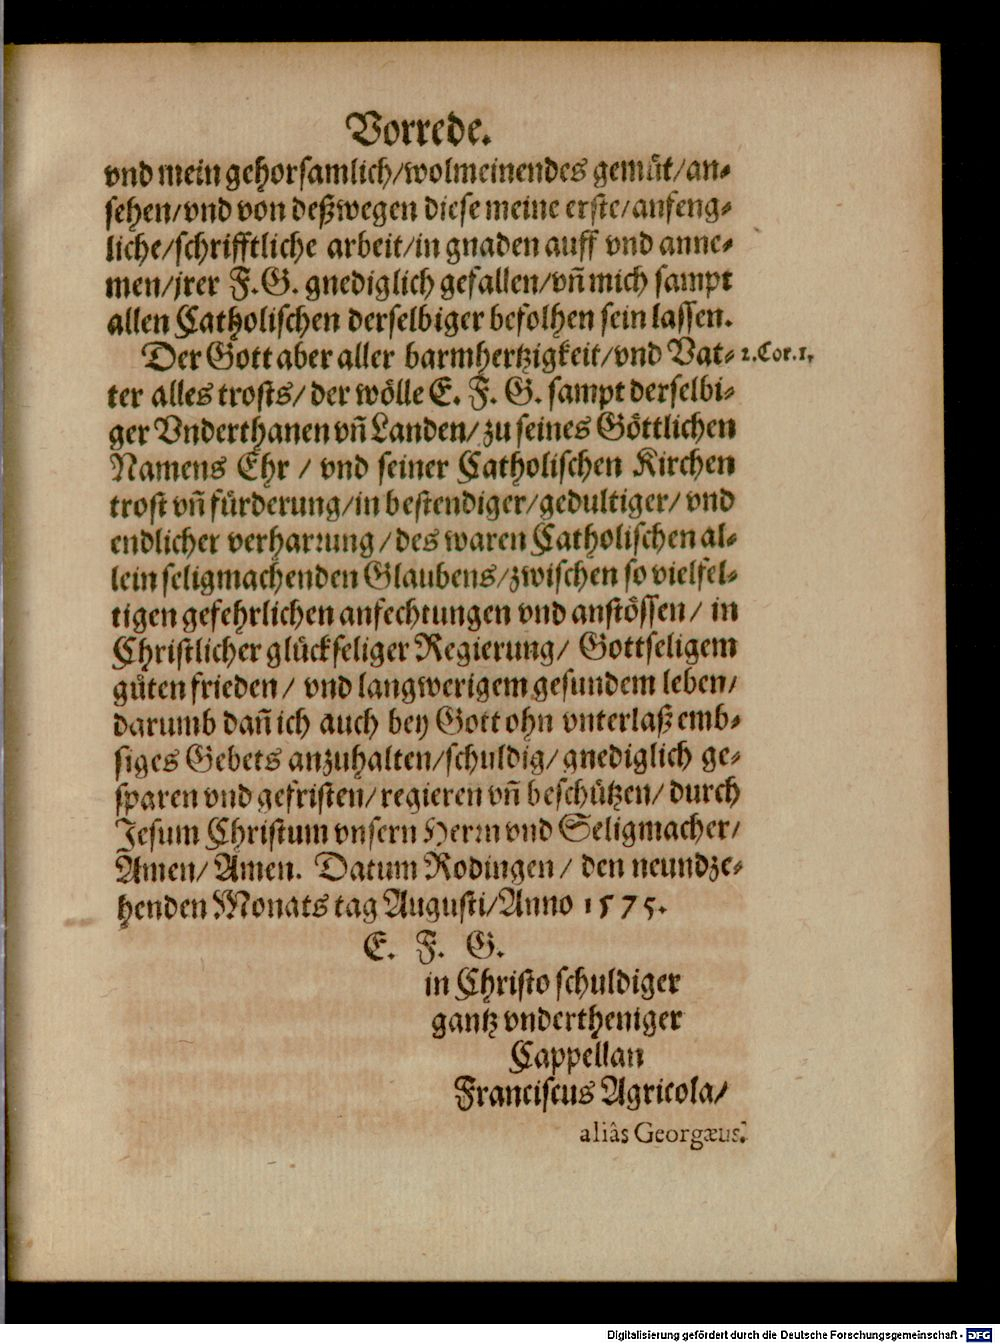 Vorrede.
vnd mein gehorsamlich/wolmeinendes gemüt/an⸗
sehen/vnd von deßwegen diese meine erste/anfeng⸗
liche/schrifftliche arbeit/in gnaden auff vnd anne⸗
men/jrer F.G. gnediglich gefallen/vñ mich sampt
allen Catholischen derselbiger befolhen sein lassen.
Der Gott aber aller barmhertzigkeit/vnd Vat⸗ 2.Cor.1,
ter alles trosts/ der wölle E. F. G. sampt derselbi⸗
ger Vnderthanen vñ Landen/ zu seines Göttlichen
Namens Ehr / vnd seiner Catholischen Kirchen
trost vñ fürderung/in bestendiger/gedultiger/ vnd
endlicher verharrung /des waren Catholischen al⸗
lein seligmachenden Glaubens/zwischen so vielfel⸗
tigen gefehrlichen anfechtungen vnd anstössen/ in
Christlicher glückseliger Regierung/ Gottseligem
güten frieden/ vnd langwerigem gesundem leben/
darumb dañ ich auch bey Gott ohn vnterlaß emb⸗
siges Gebets anzuhalten/schuldig/ gnediglich ge⸗
sparen vnd gefristen/ regieren vñ beschützen/ durch
Jesum Christum vnsern Herrn vnd Seligmacher/
Amen/ Amen. Datum Rodingen / den neundze⸗
henden Monats tag Augusti/Anno 1575.
E. F. G.
in Christo schuldiger
gantz vndertheniger
Cappellan
Franciscus Agricola/
aliâs Georgæus.
Digitalisierung gefördert durch die Deutsche Forschungsgemeinschaft - DFG